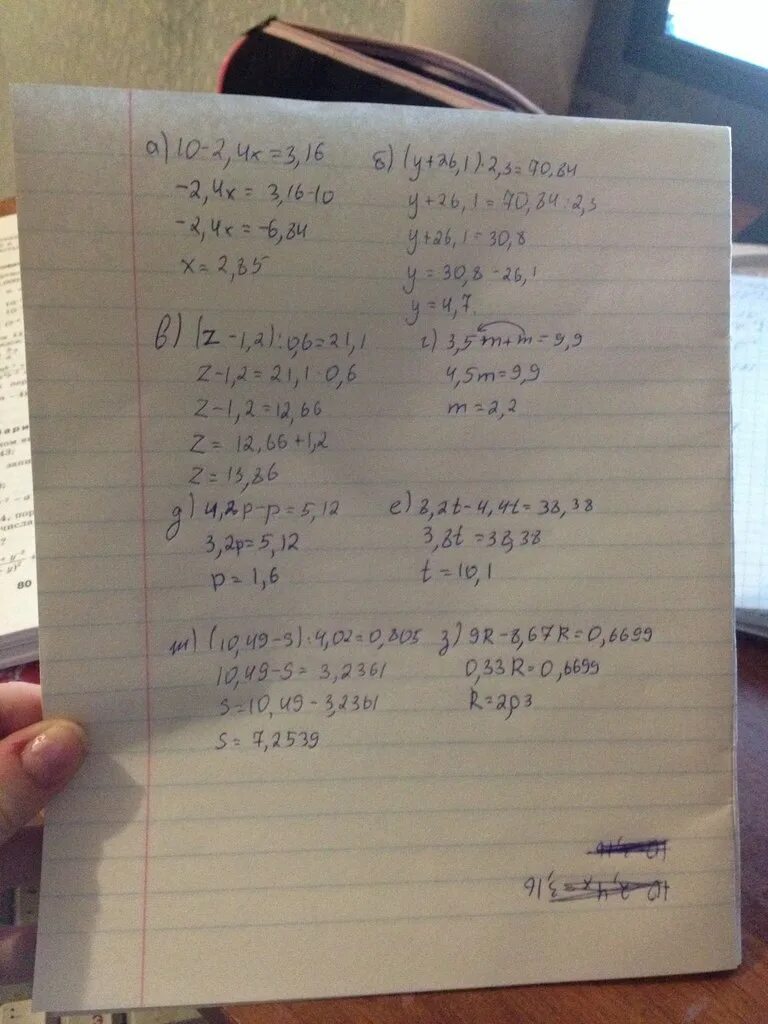 а) 10-2,4x=3,16
-2,4x= 3,16-10
-2,4x=-6,84
x=2,85
б) (y+26,1)·2,3=70,84
y+26,1=70,84:2,3
y+26,1=30,8
y=30,8-26,1
y=4,7.
в) (z-1,2):0,6=21,1
z-1,2=21,1·0,6
z-1,2=12,66
z= 12,66+1,2
z=13,86
г) 3,5m+m=9,9
4,5m=9,9
m=2,2
д) 4,2p-p=5,12
3,2p=5,12
p=1,6
е) 8,2t-4,4t=38,38
3,8t=38,38
t=10,1
ж) (10,49-s):4,02=0,805
10,49-s= 3,2361
s=10,49-3,2361
s= 7,2539
з) 9R-8,67R=0,6699
0,33R=0,6699
R=2,03
10-2,4x=3,16
80